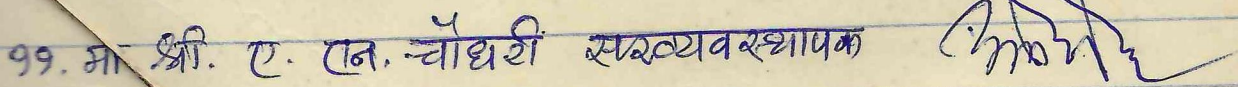 ११. मा श्री. ए. एन. चौधरी सरव्यवस्थापक